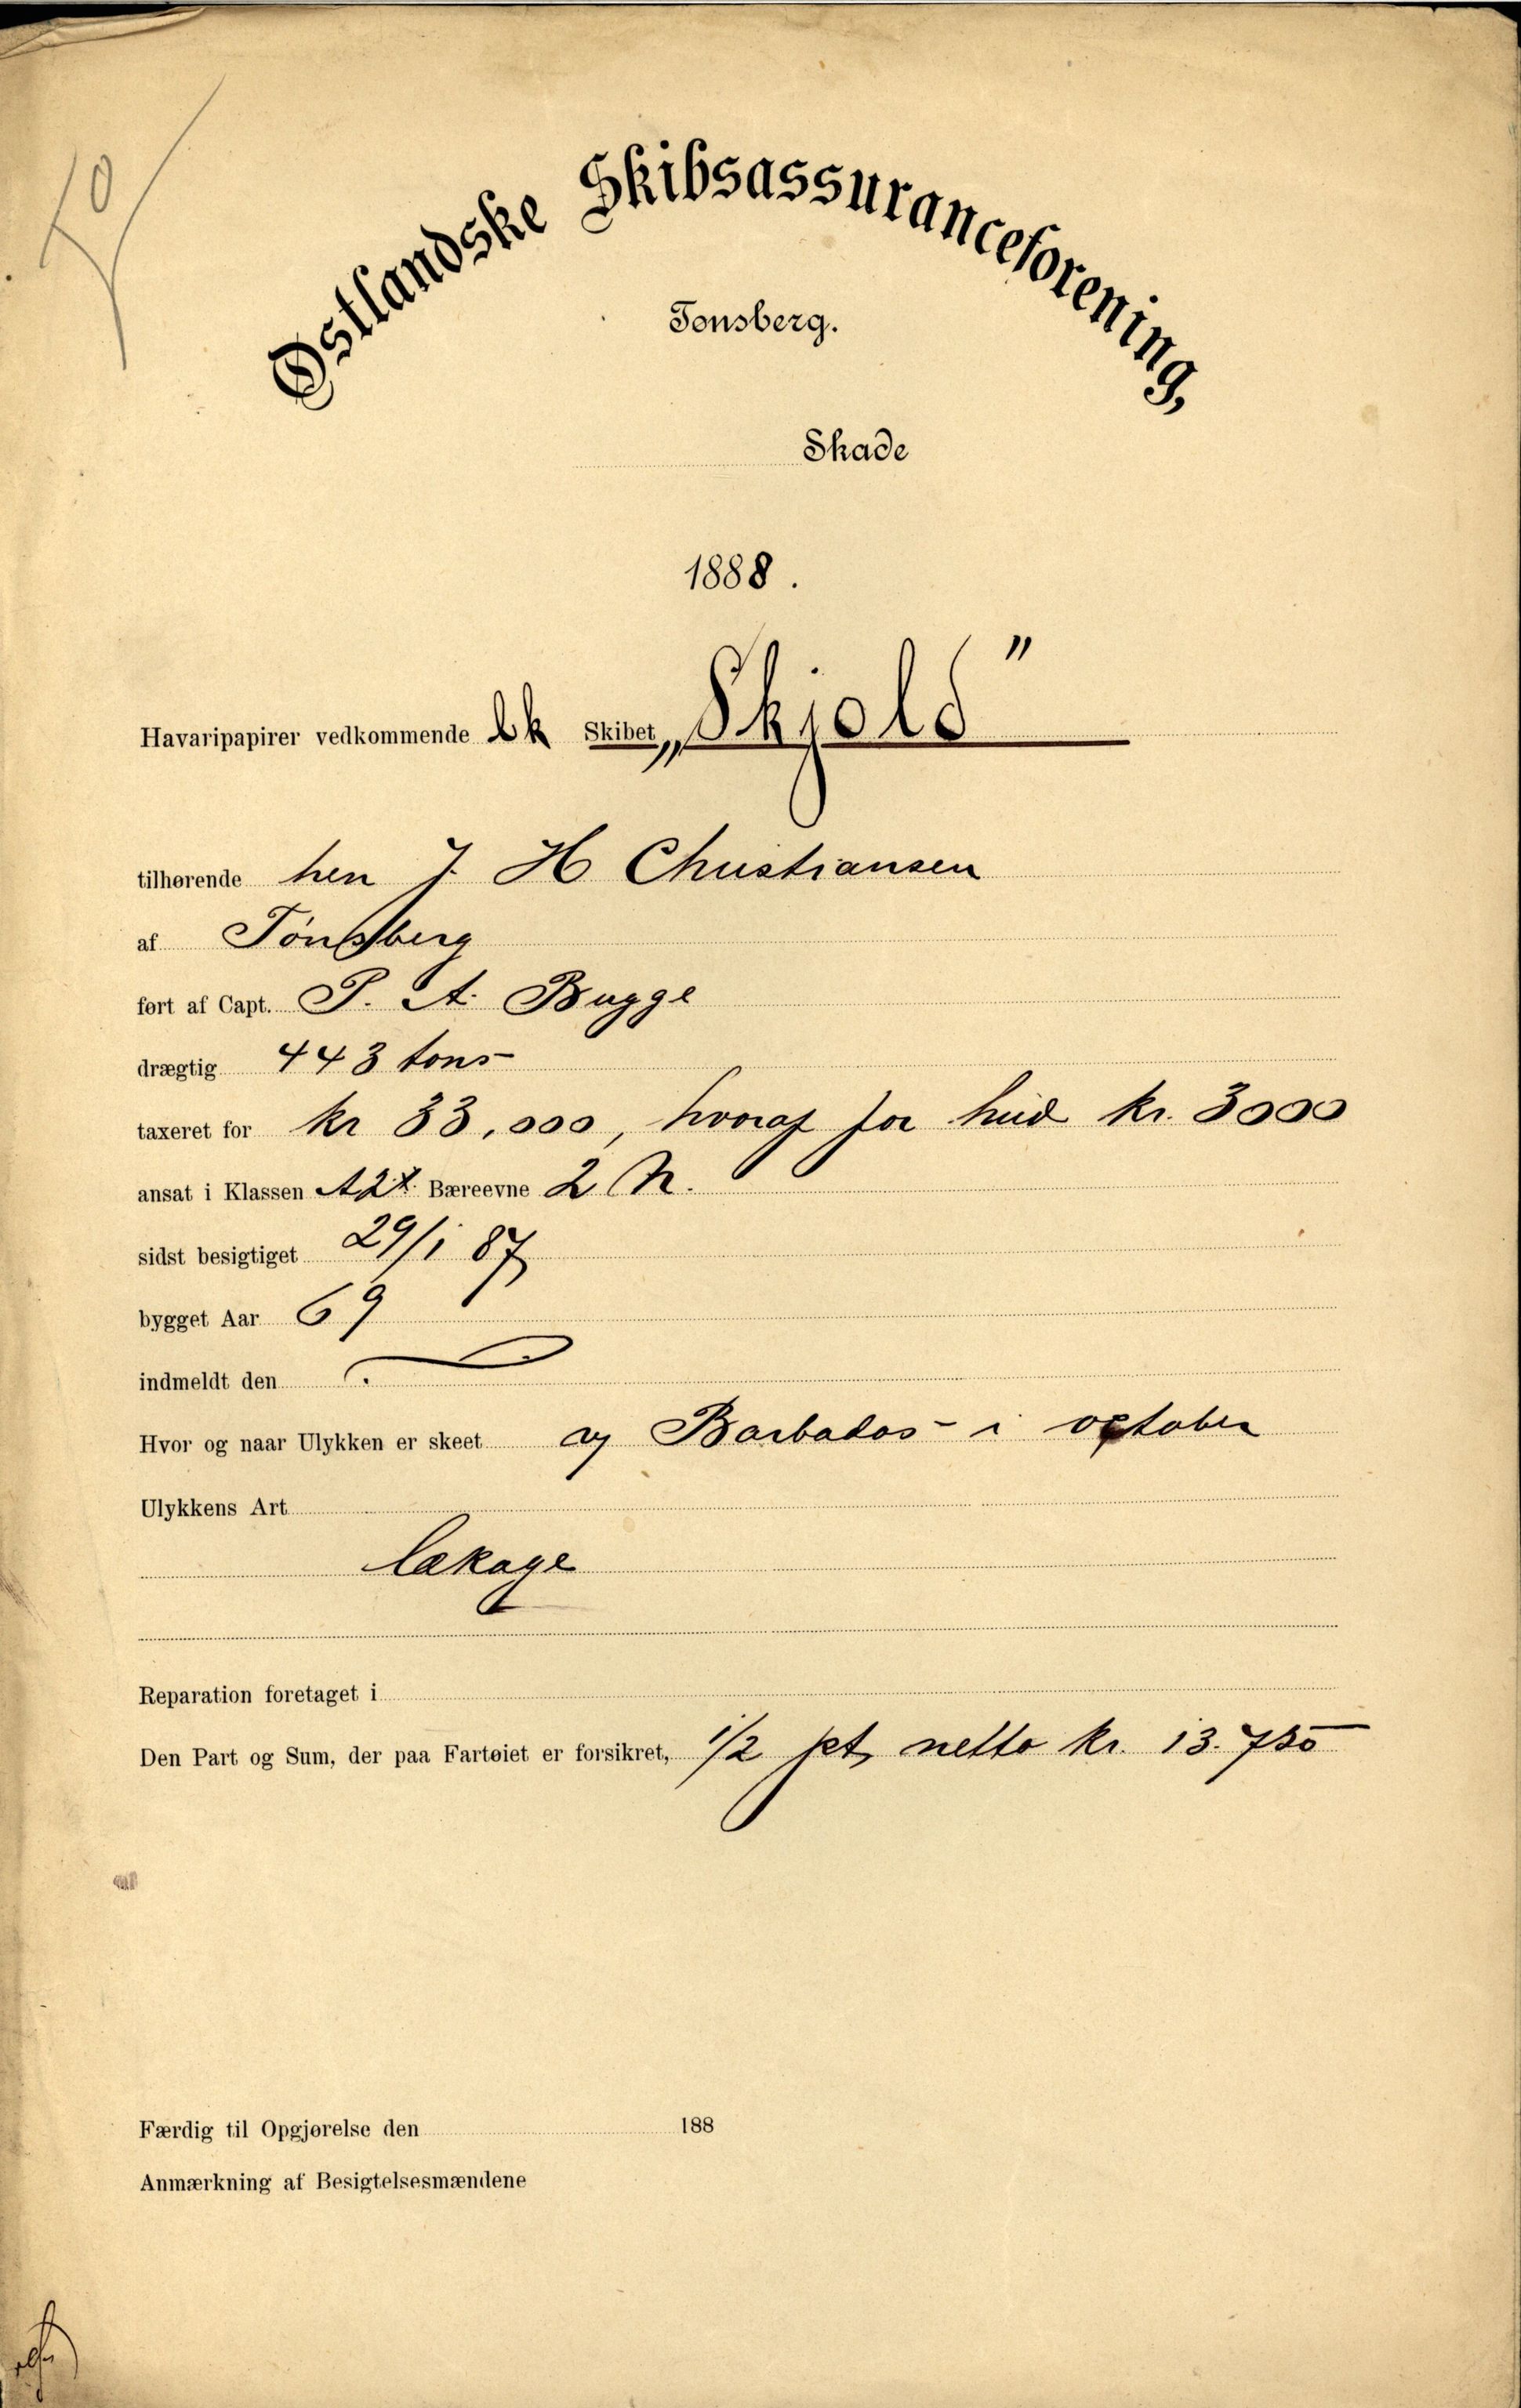 Østlandske Skibsassuranceforening,
Tonsberg.
Skade
1888.
Havaripapirer vedkommende bk Skibet „Skjold"
tilhørende herr J. H Christiansen
af Tönsberg
ført af Capt. P. A. Bugge
drægtig 443 tons
taxeret for kr 33,000, hvoraf for hud kr. 3000
ansat i Klassen A2 Bæreevne 2
sidst besigtiget 29/1 87
bygget Aar 69
indmeldt den
Hvor og naar Ulykken er skeet Barbados - i october
Ulykkens Art
lækage
Reparation foretaget i
Den Part og Sum, der paa Fartøiet er forsikret, 1/2 pt, netto kr. 13.750
Færdig til Opgjørelse den 188
Anmærkning af Besigtelsesmændene